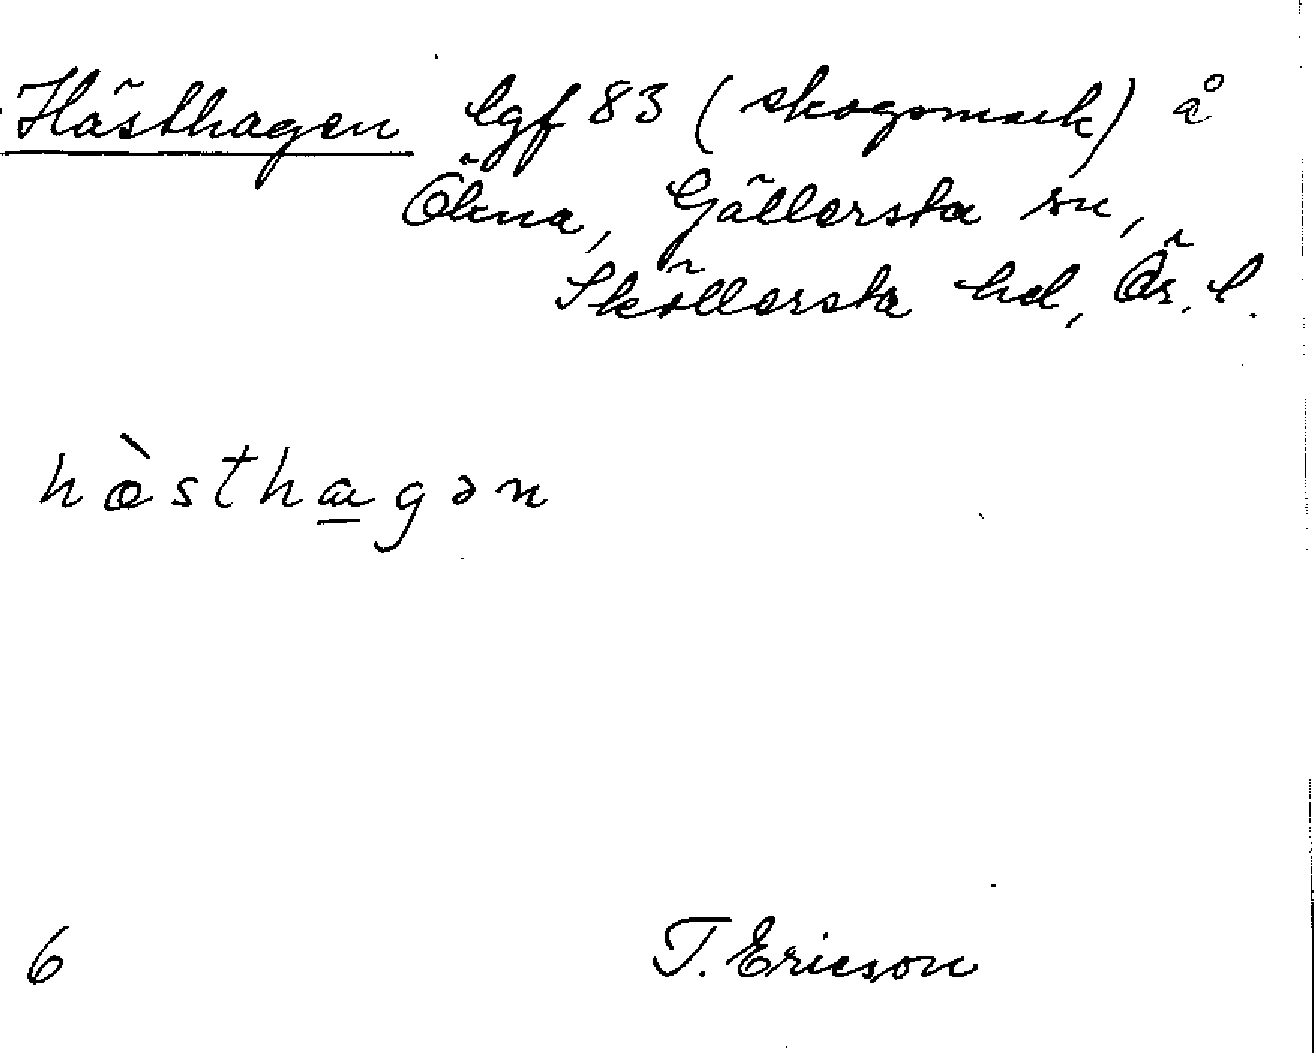 Hästhagen lgf 83 (skogsmark) å
Ökna, Gällersta sn,
Sköllersta hd, Ör. l.
hὰstha̲gən
6
T. Ericson